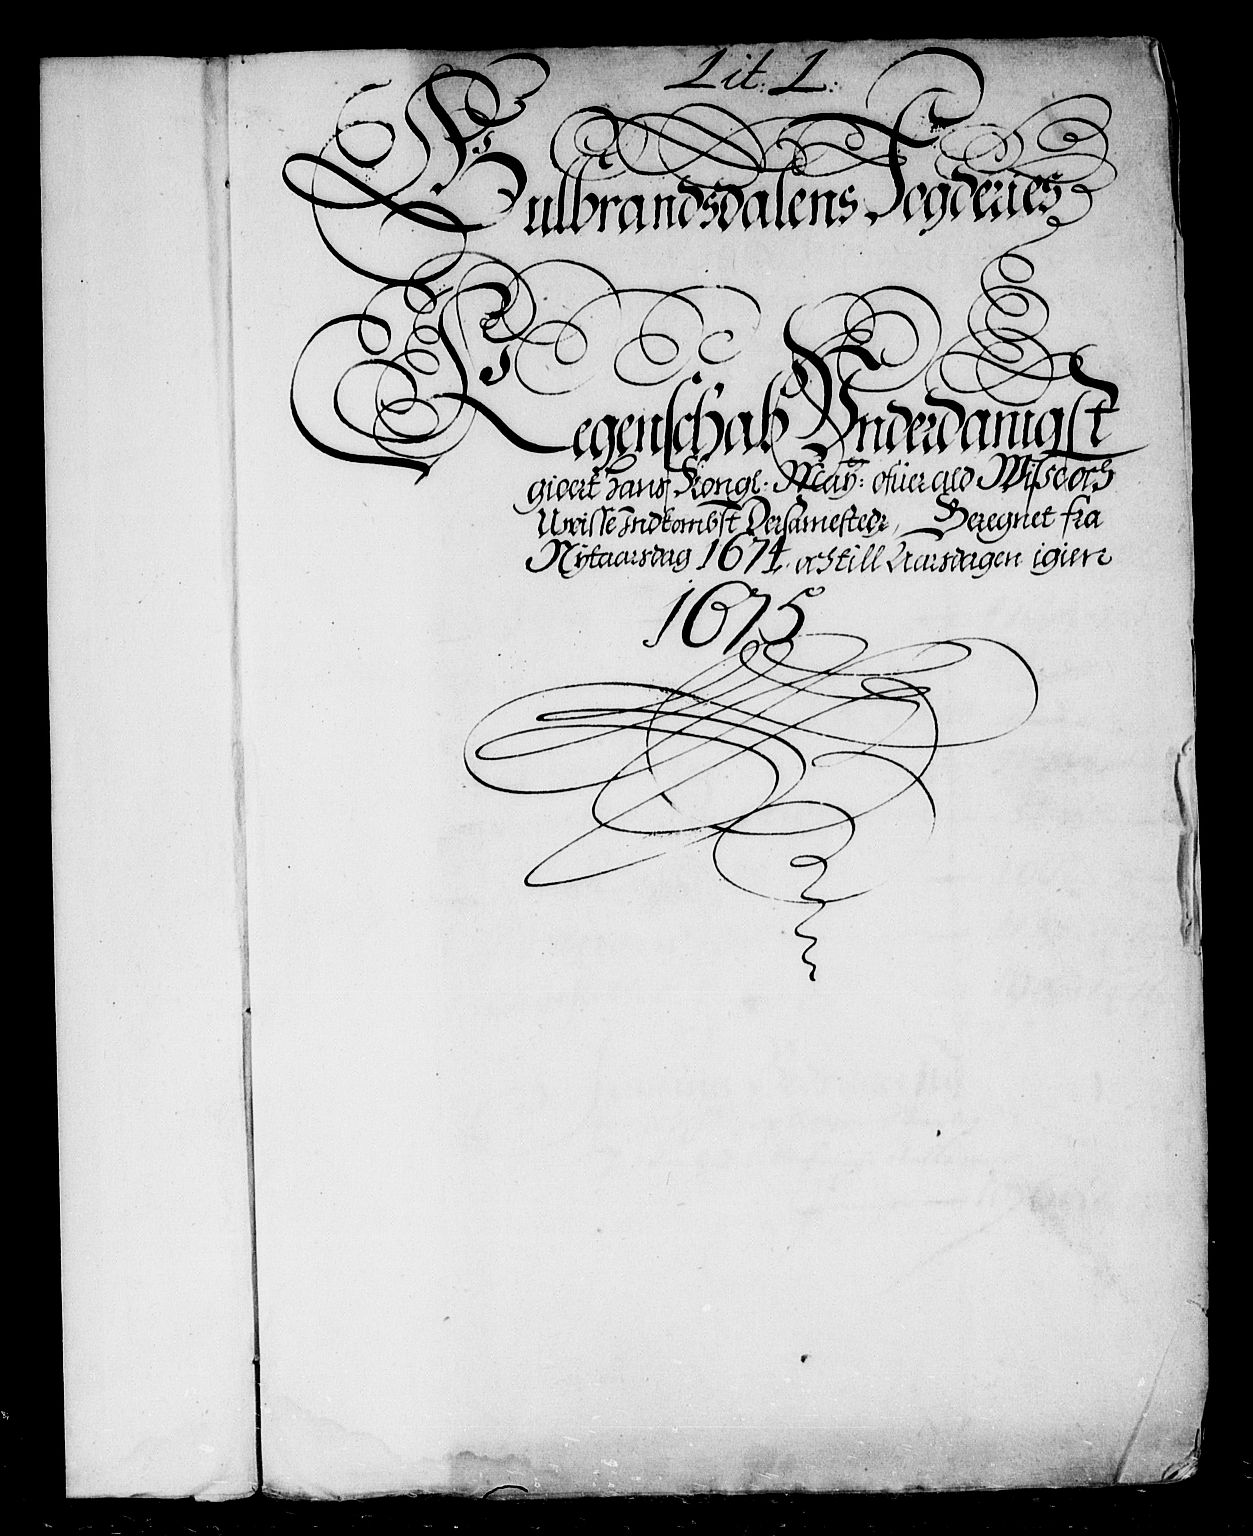 Lit: L:
Gulbrandsdalens Fogderies
Regenschab Vnderdanigst
giort hans Kongl: May: ofuer ald Wis och
Uwisse Indkombst Dersamesteds, Beregnet fra
Nÿtaarsdag 1674. och till Aarsdagen igien
1675